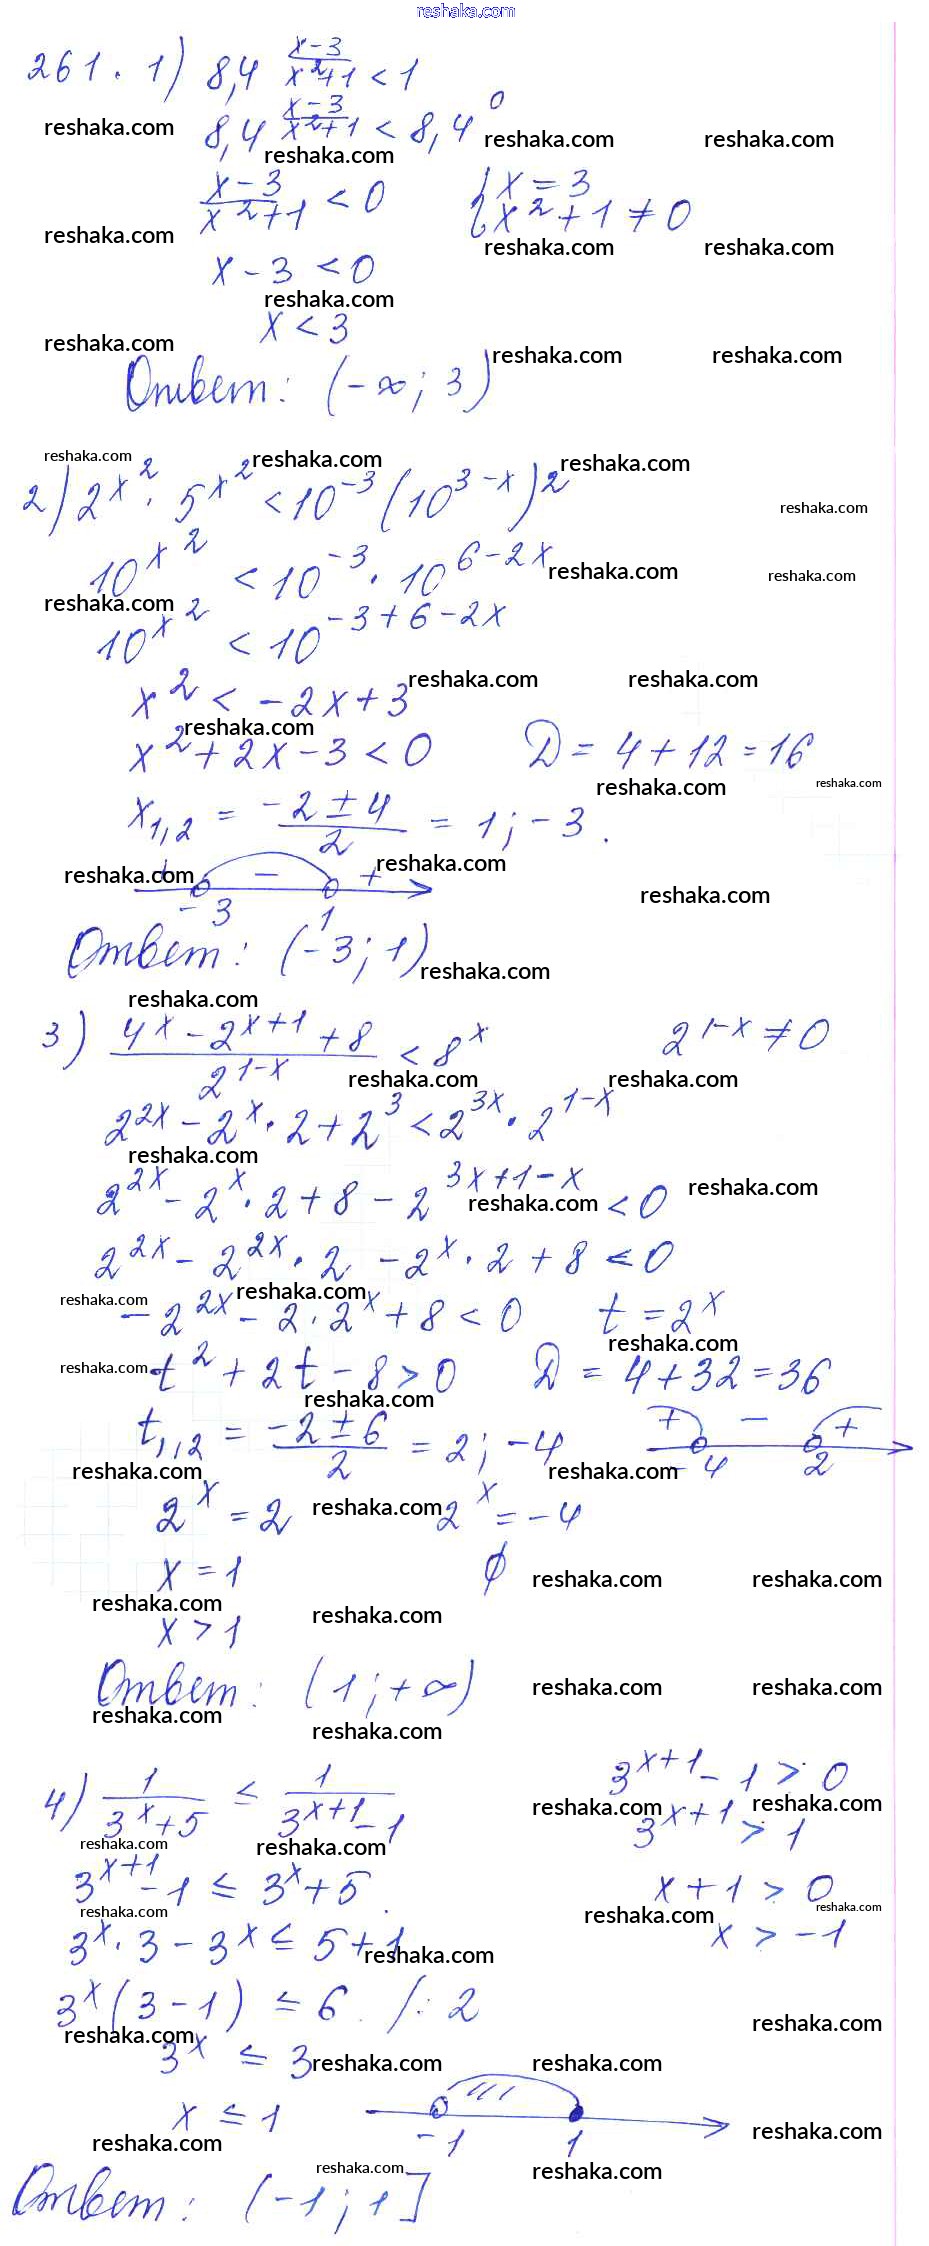 reshaka.com
261. 1) 8,4^((x-3)/(x²+1)) < 1
8,4^((x-3)/(x²+1)) < 8,4⁰
reshaka.com reshaka.com reshaka.com
reshaka.com
(x-3)/(x²+1) < 0 { x = 3
{ x²+1 ≠ 0
reshaka.com reshaka.com reshaka.com
x-3 < 0
reshaka.com
x < 3
reshaka.com reshaka.com reshaka.com
Ответ: (-∞; 3)
reshaka.com reshaka.com reshaka.com
2) 2^(x²) · 5^(x²) < 10^(-3) (10^(3-x))2
reshaka.com
10^(x²) < 10^(-3) · 10^(6-2x)
reshaka.com reshaka.com
reshaka.com
10^(x²) < 10^(-3+6-2x)
reshaka.com reshaka.com
x² < -2x+3
reshaka.com
x²+2x-3 < 0 D = 4+12 = 16
reshaka.com reshaka.com
x₁,₂ = (-2±4)/2 = 1; -3.
reshaka.com reshaka.com
+ - +
reshaka.com
-3 1
Ответ: (-3; 1)
reshaka.com
reshaka.com
3) (4^x - 2^(x+1) + 8)/(2^(1-x)) < 8^x 2^(1-x) ≠ 0
reshaka.com reshaka.com
2^(2x) - 2^x · 2 + 2³ < 2^(3x) · 2^(1-x)
reshaka.com
2^(2x) - 2^x · 2 + 8 - 2^(3x+1-x) < 0
reshaka.com reshaka.com
2^(2x) - 2^(2x) · 2 - 2^x · 2 + 8 < 0
reshaka.com reshaka.com
-2^(2x) - 2 · 2^x + 8 < 0 t = 2^x
reshaka.com
reshaka.com
t² + 2t - 8 > 0 D = 4+32 = 36
reshaka.com
t₁,₂ = (-2±6)/2 = 2; -4 + - +
reshaka.com reshaka.com
-4 2
2^x = 2 2^x = -4
reshaka.com
x = 1 ∅
reshaka.com reshaka.com
reshaka.com reshaka.com
x > 1
Ответ: (1; +∞)
reshaka.com reshaka.com
reshaka.com reshaka.com
4) 1/(3^x+5) ≤ 1/(3^(x+1)-1) 3^(x+1) - 1 > 0
reshaka.com reshaka.com
3^(x+1) > 1
reshaka.com reshaka.com
3^(x+1) - 1 ≤ 3^x + 5. x+1 > 0
reshaka.com reshaka.com reshaka.com
3^x · 3 - 3^x ≤ 5+1 x > -1
reshaka.com
3^x (3-1) ≤ 6 /: 2
reshaka.com reshaka.com
3^x ≤ 3
reshaka.com reshaka.com
x ≤ 1
-1 1
reshaka.com reshaka.com
reshaka.com reshaka.com
Ответ: (-1; 1]